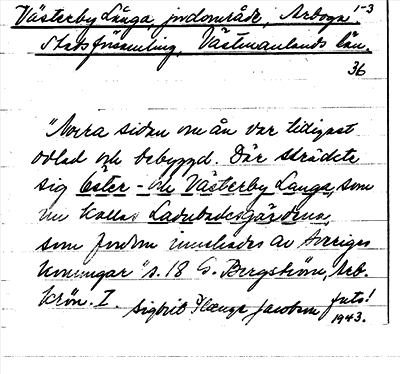 Västerby Långa, jordområde, Arboga 1-3
Stadsförsamling, Västmanlands län.
36
"Norra sidan om ån var tidigast
odlad och bebyggd. Där sträckte
sig Öster- och Västerby Langa, som
nu kallas Ladubacksgärdena,
som fordom innehades av Sveriges
konungar" s. 18 G. Bergström, Arb.
krön. I.
Sigbrit Jacobson foto!
1943.